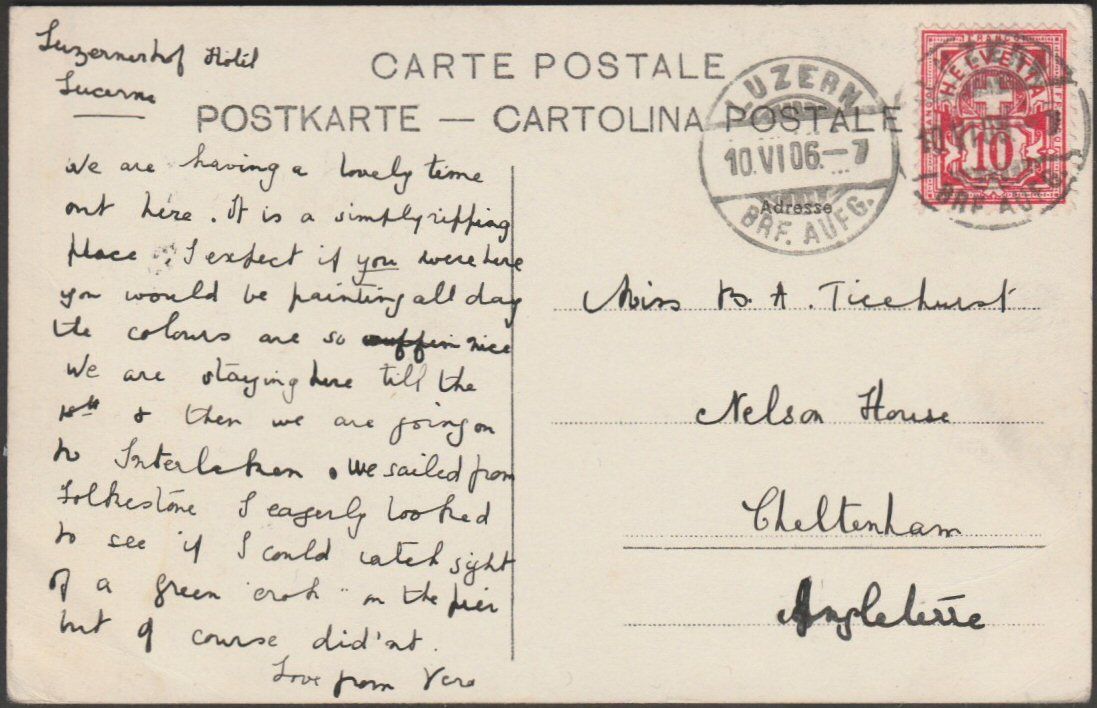 Luzernerhof Hotel
Lucerne
CARTE POSTALE
POSTKARTE — CARTOLINA POSTALE
LUZERN
10.VI.06.–7
BRF. AUFG.
HELVETIA
10
Adresse
We are having a lovely time
out here. It is a simply ripping
place. I expect if you were here
you would be painting all day
the colours are so nice
We are staying here till the
& then we are going on
to Interlaken. We sailed from
Folkestone I eagerly looked
to see if I could catch sight
of a green on the pier
but of course did'nt.
Love from Vera
Miss B. A. Ticehurst
Nelson House
Cheltenham
Angleterre